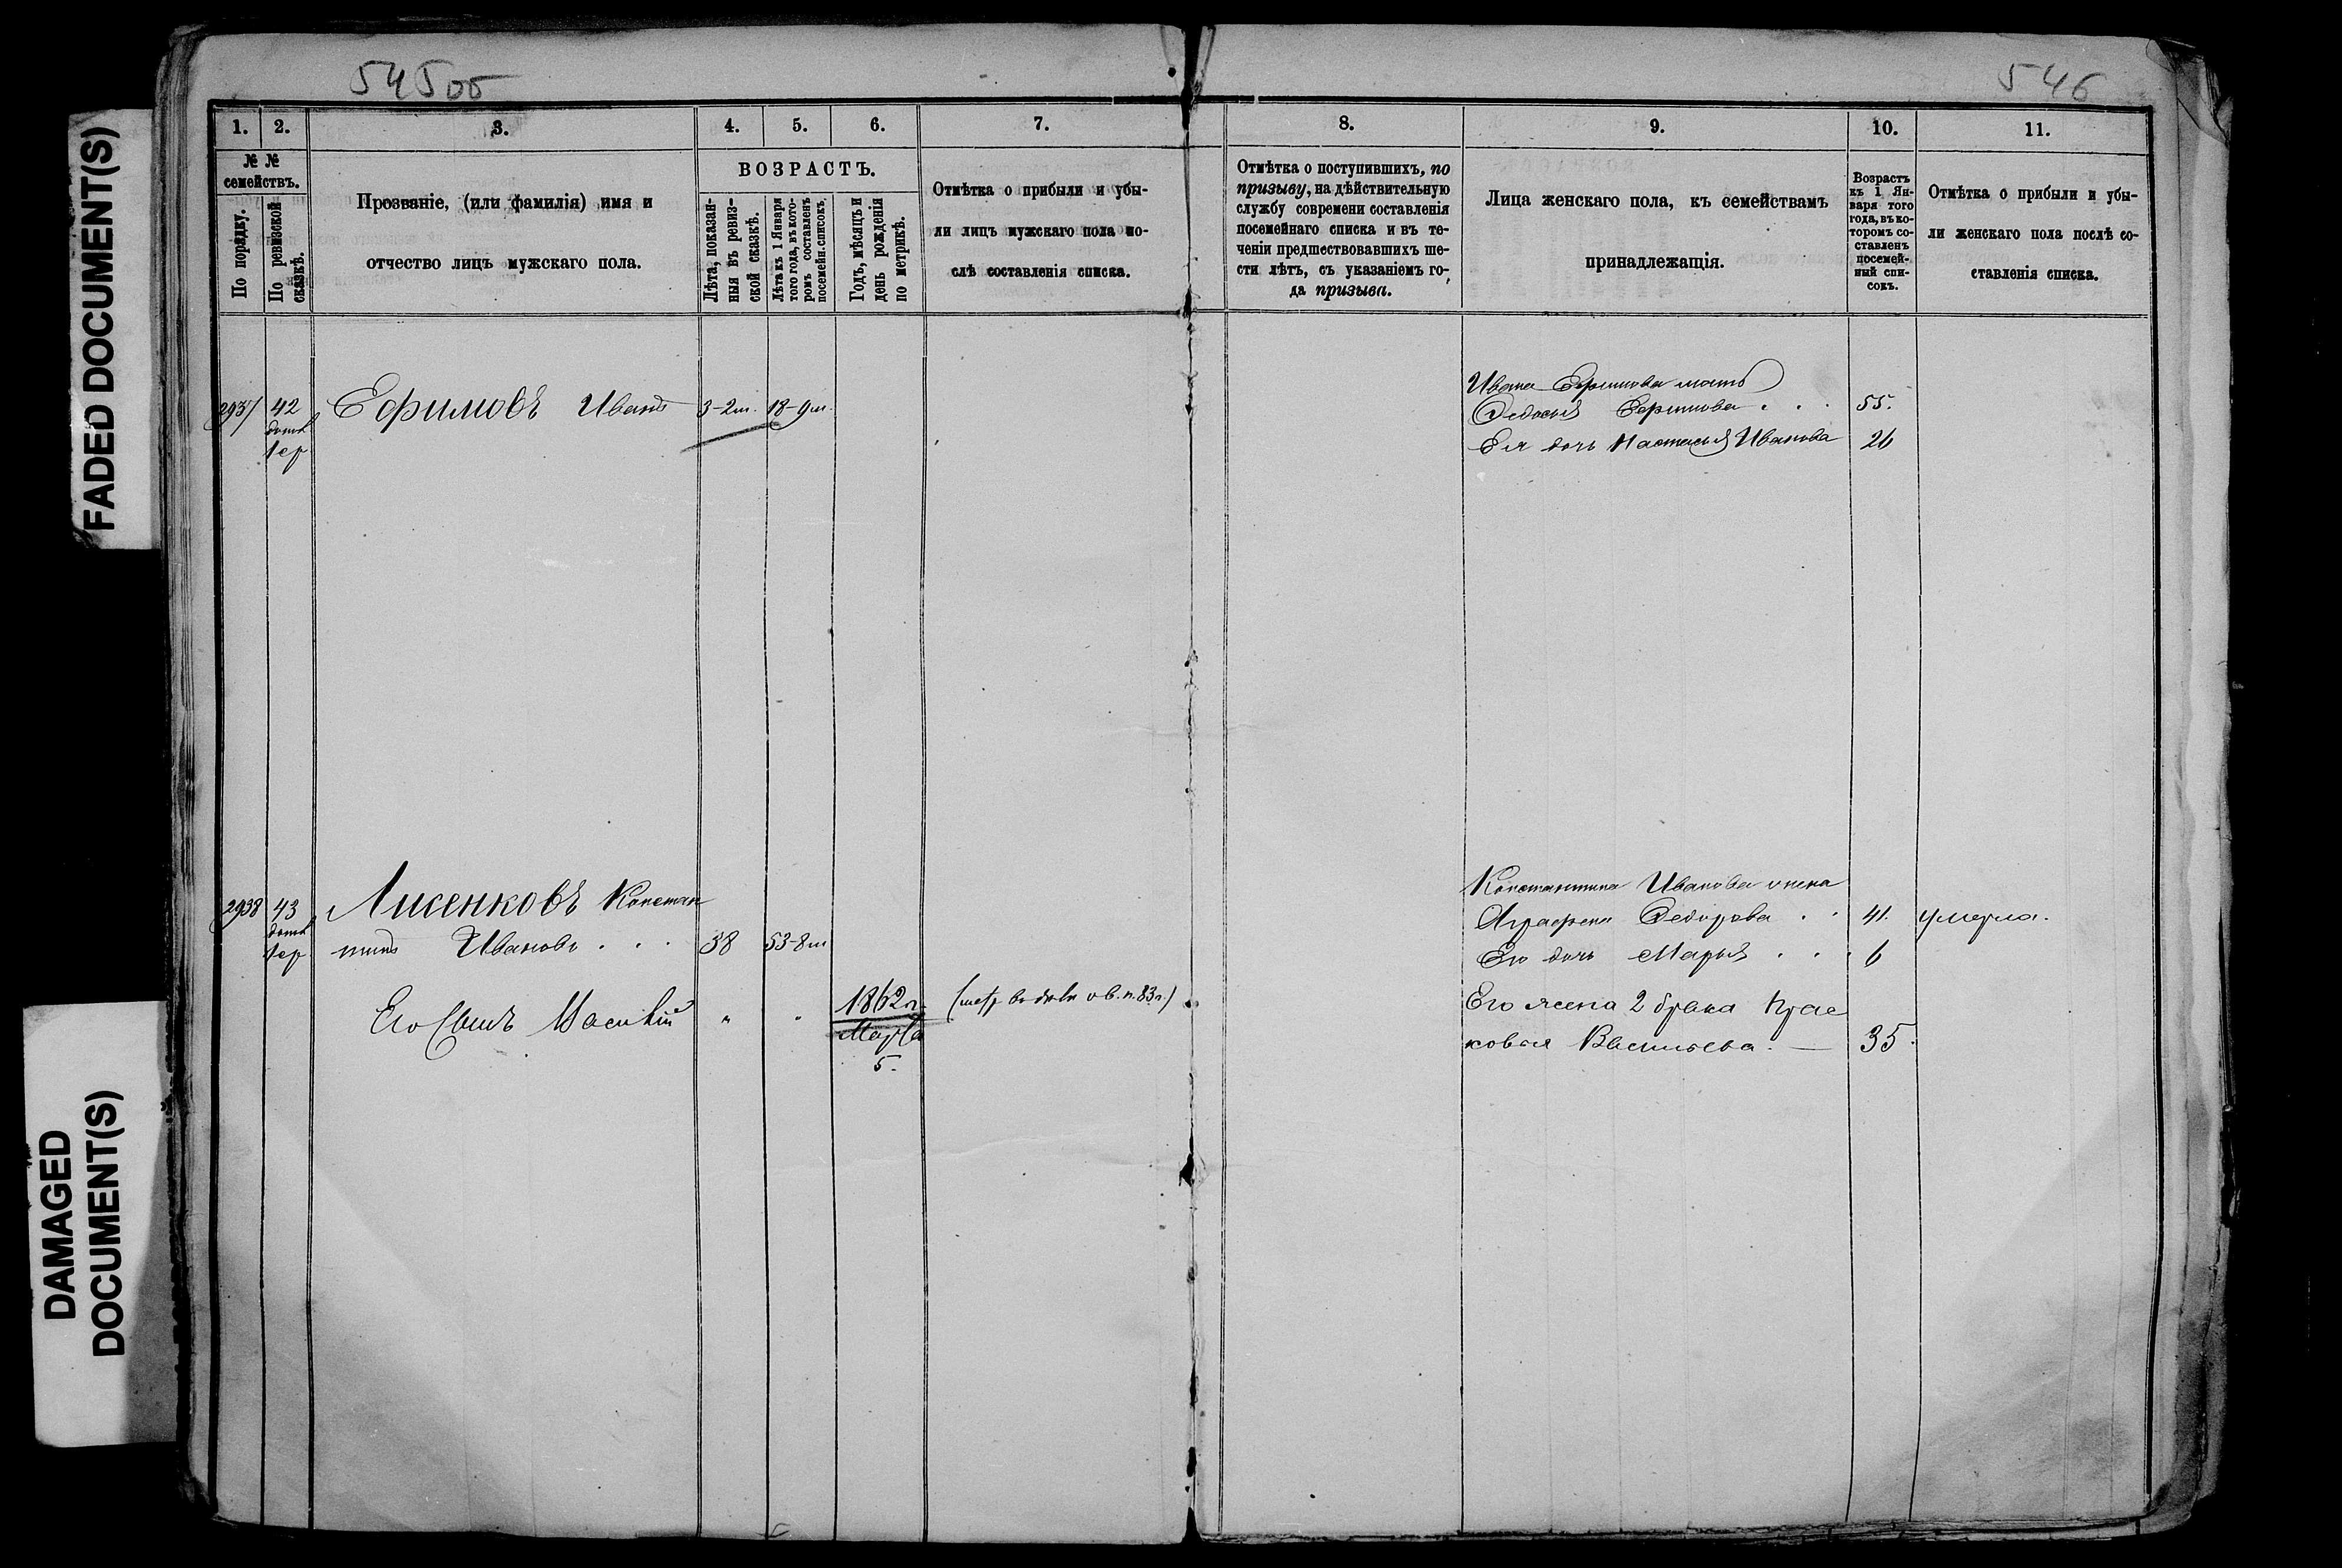 FADED DOCUMENT(S)
DAMAGED
DOCUMENT(S)
546
1. 2. 3. 4. 5. 6. 7. 8. 9. 10. 11.
№ №
семействъ.
По порядку.
По ревизской
сказкѣ.
Прозваніе, (или фамилія) имя и
отчество лицъ мужскаго пола.
ВОЗРАСТЪ.
Лѣта, показан-
ныя въ ревиз-
ской сказкѣ.
Лѣта къ 1 Января
того года, въ кото-
ромъ составленъ
посемейн. списокъ.
Годъ, мѣсяцъ и
день рожденія
по метрикѣ.
Отмѣтка о прибыли и убы-
ли лицъ мужскаго пола по-
слѣ составленія списка.
Отмѣтка о поступившихъ, по
призыву, на дѣйствительную
службу современи составленія
посемейнаго списка и въ те-
ченіи предшествовавшихъ ше-
сти лѣтъ, съ указаніемъ го-
да призыва.
Лица женскаго пола, къ семействамъ
принадлежащія.
Возрастъ
къ 1 Ян-
варя того
года, въ ко-
торомъ со-
ставленъ
посемей-
ный спи-
сокъ.
Отмѣтка о прибыли и убы-
ли женскаго пола послѣ со-
ставленія списка.
2937 42 Ефимовъ Иванъ 3-2м. 18-9м.
Ивана Ефимова мать
Федосья Ефимова . . . 55.
Ея дочь Настасья Иванова 26
2938 43 Лисенковъ Констан
тинъ Ивановъ . . . 38 53-8м
Его Сынъ Василій " " 1862г.
Марта
5.
Константина Иванова жена
Аграфена Федорова . . 41. умерла.
Его дочь Марья . . . 6
Его жена 2 брака Прас
ковья Васильева. — 35.